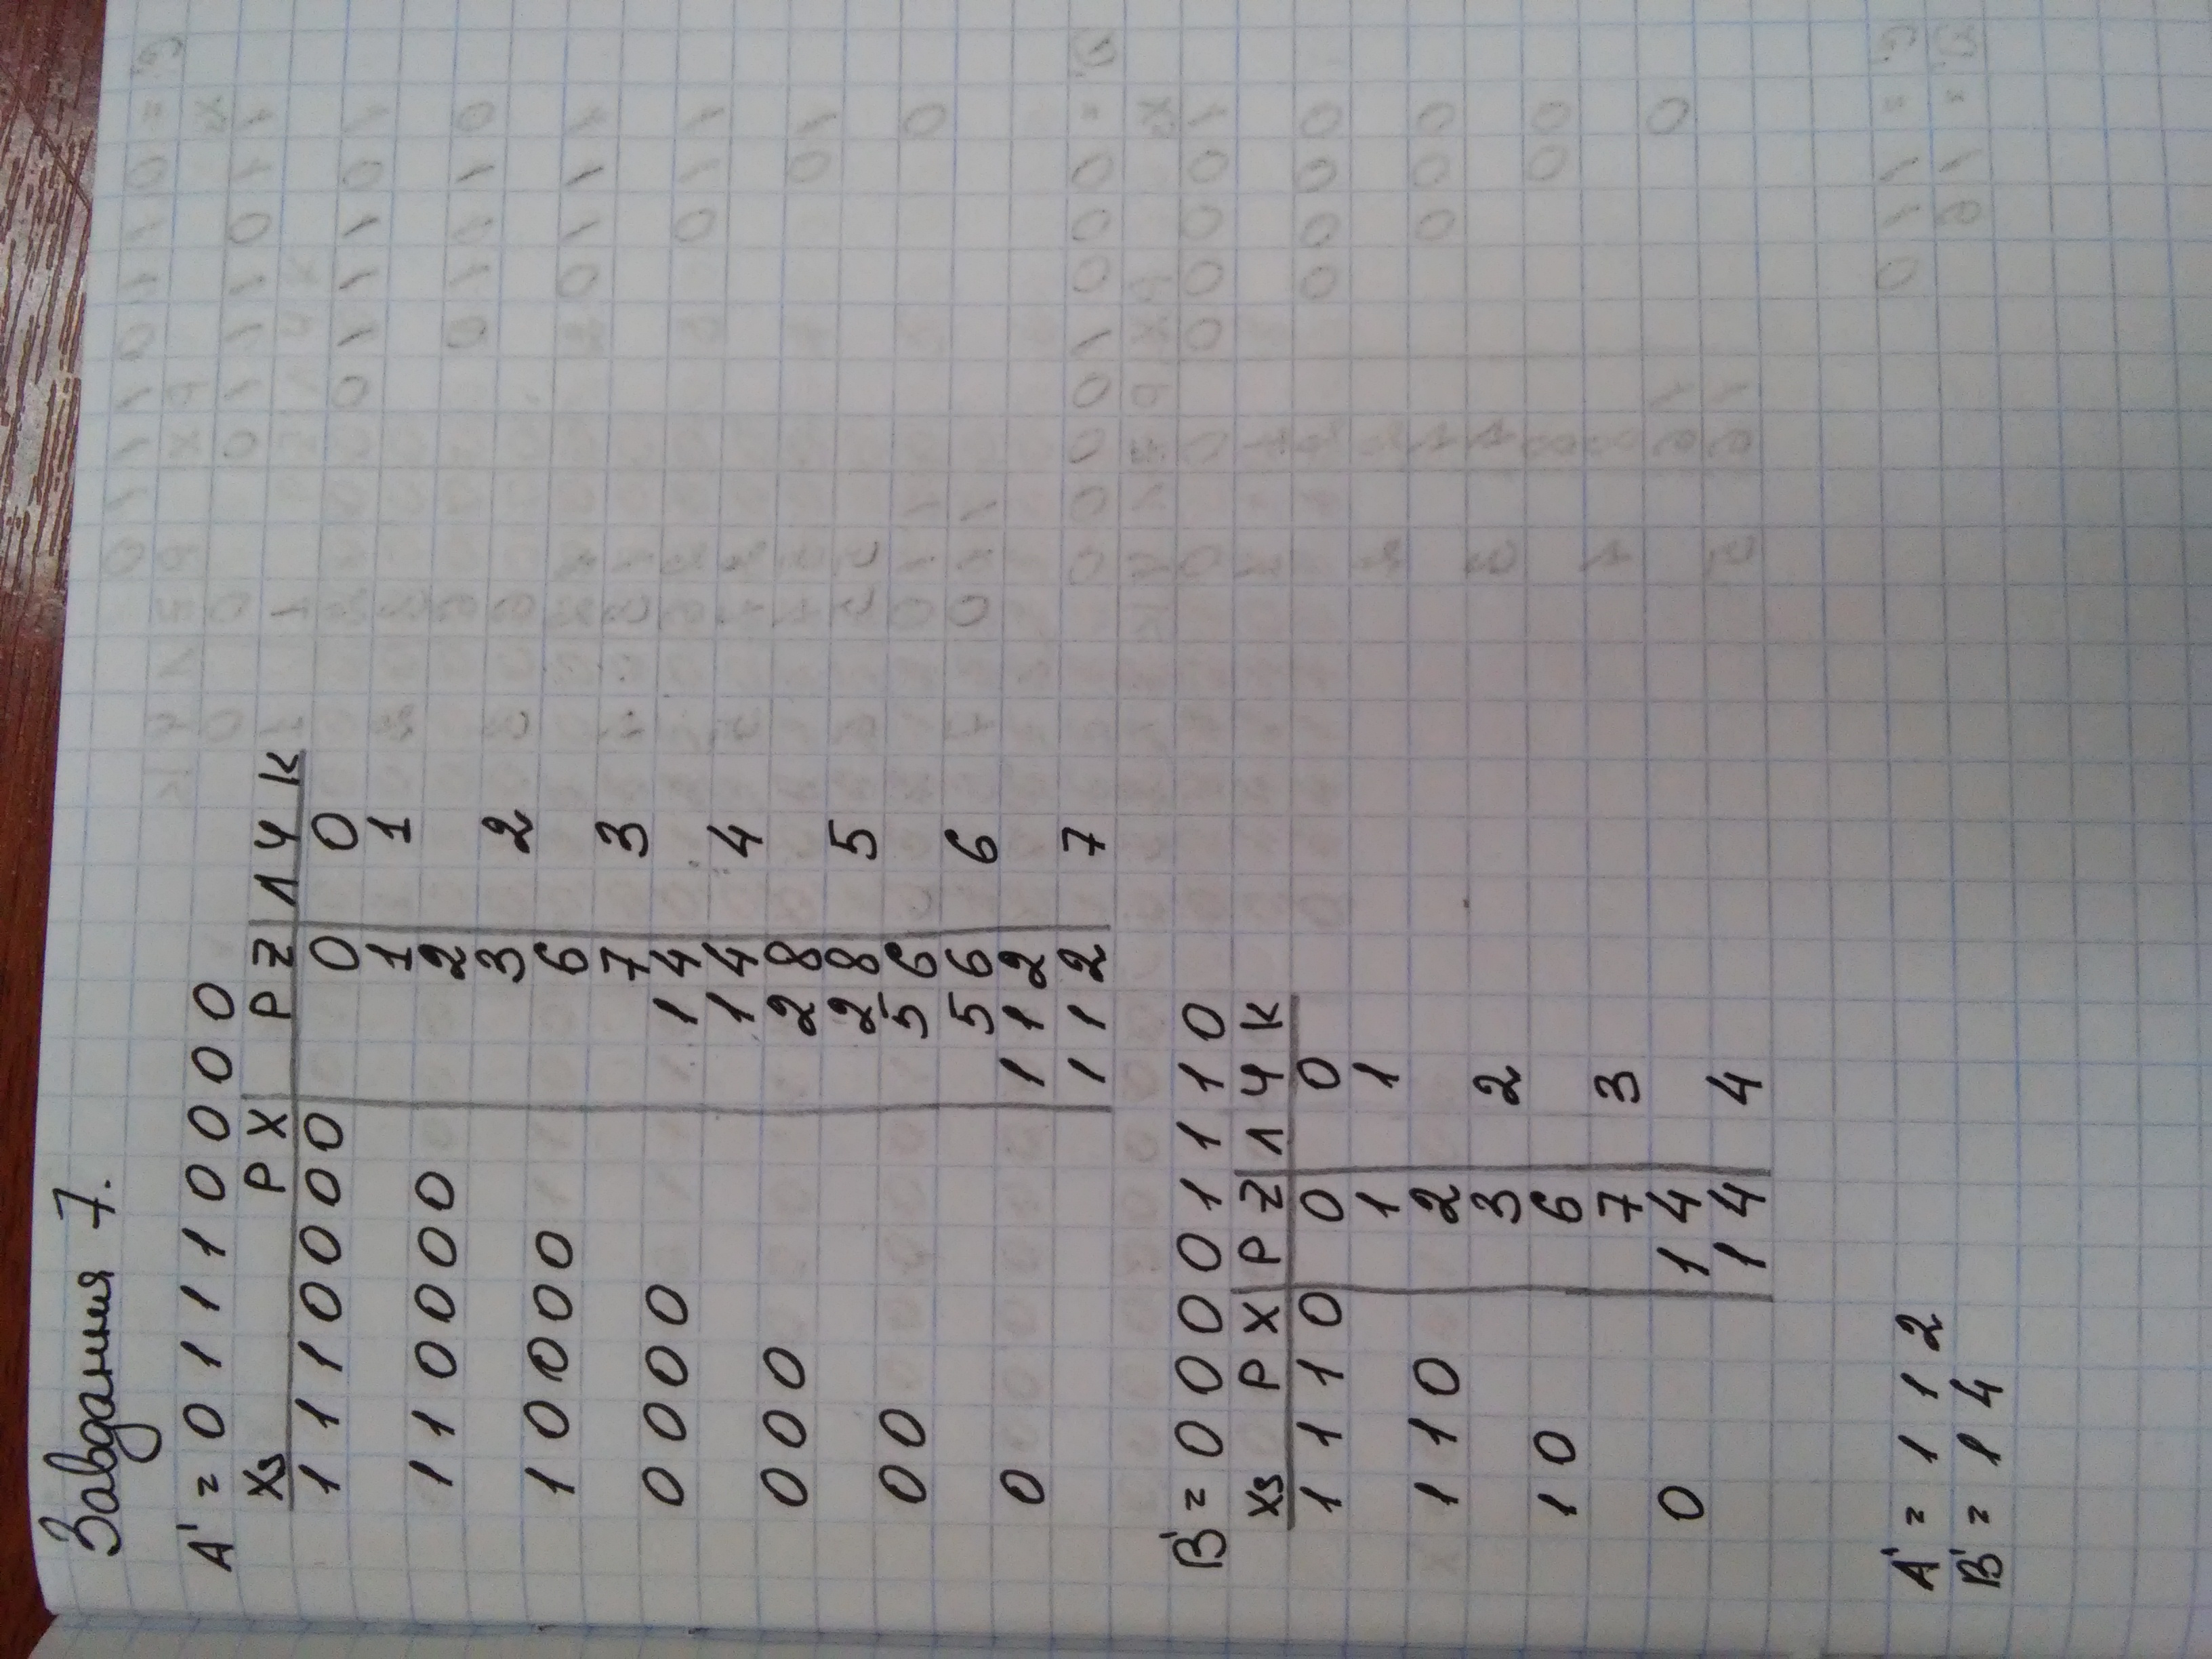 Завдання 7.
A' = 0 1 1 1 0 0 0 0
Xs P X P Z Л Ч К
1 1 1 0 0 0 0 0 0
1 1
1 1 0 0 0 0 2
3 2
1 0 0 0 0 6
7 3
0 0 0 0 1 4
1 4 4
0 0 0 2 8
2 8 5
0 0 5 6
5 6 6
0 1 1 2
1 1 2 7
B' = 0 0 0 0 1 1 1 0
Xs P X P Z Л Ч К
1 1 1 0 0 0
1 1
1 1 0 2
3 2
1 0 6
7 3
0 1 4
1 4 4
A' = 1 1 2
B' = 1 4